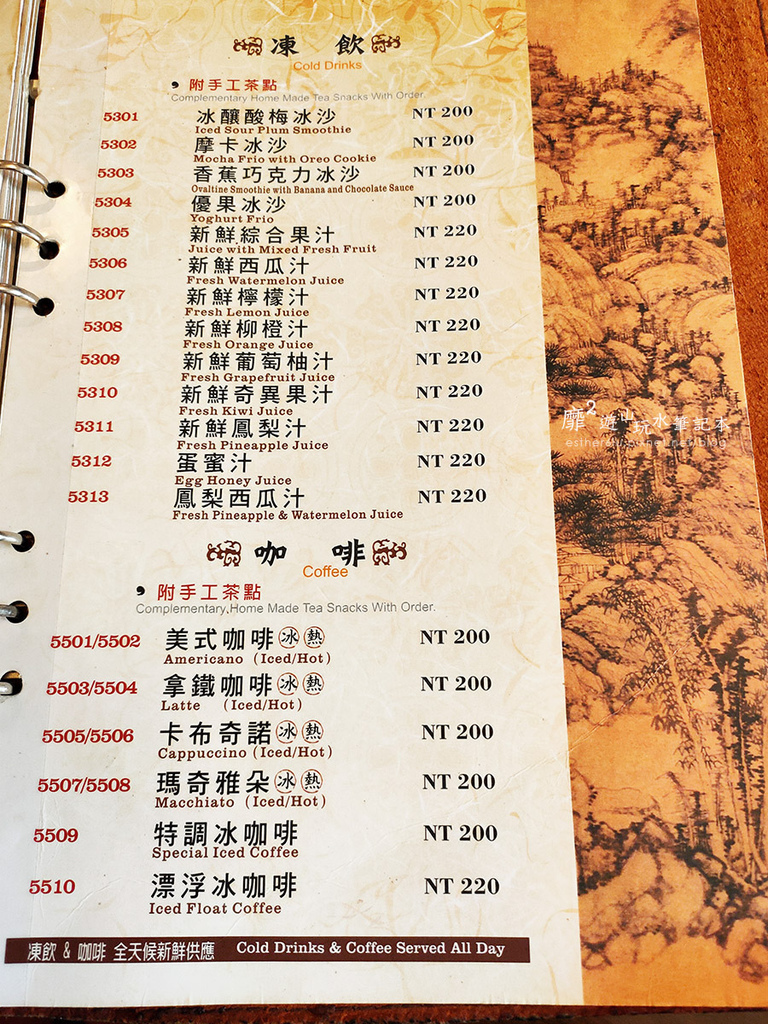 凍 飲
Cold Drinks
附手工茶點
Complementary Home Made Tea Snacks With Order.
5301 冰釀酸梅冰沙 NT 200
Iced Sour Plum Smoothie
5302 摩卡冰沙 NT 200
Mocha Frio with Oreo Cookie
5303 香蕉巧克力冰沙 NT 200
Ovaltine Smoothie with Banana and Chocolate Sauce
5304 優果冰沙 NT 200
Yoghurt Frio
5305 新鮮綜合果汁 NT 220
Juice with Mixed Fresh Fruit
5306 新鮮西瓜汁 NT 220
Fresh Watermelon Juice
5307 新鮮檸檬汁 NT 220
Fresh Lemon Juice
5308 新鮮柳橙汁 NT 220
Fresh Orange Juice
5309 新鮮葡萄柚汁 NT 220
Fresh Grapefruit Juice
5310 新鮮奇異果汁 NT 220
Fresh Kiwi Juice
5311 新鮮鳳梨汁 NT 220
Fresh Pineapple Juice
5312 蛋蜜汁 NT 220
Egg Honey Juice
5313 鳳梨西瓜汁 NT 220
Fresh Pineapple & Watermelon Juice
咖 啡
Coffee
附手工茶點
Complementary,Home Made Tea Snacks With Order.
5501/5502 美式咖啡 冰 熱 NT 200
Americano (Iced/Hot)
5503/5504 拿鐵咖啡 冰 熱 NT 200
Latte (Iced/Hot)
5505/5506 卡布奇諾 冰 熱 NT 200
Cappuccino (Iced/Hot)
5507/5508 瑪奇雅朵 冰 熱 NT 200
Macchiato (Iced/Hot)
5509 特調冰咖啡 NT 200
Special Iced Coffee
5510 漂浮冰咖啡 NT 220
Iced Float Coffee
凍飲 & 咖啡 全天候新鮮供應 Cold Drinks & Coffee Served All Day
靡2遊山玩水筆記本